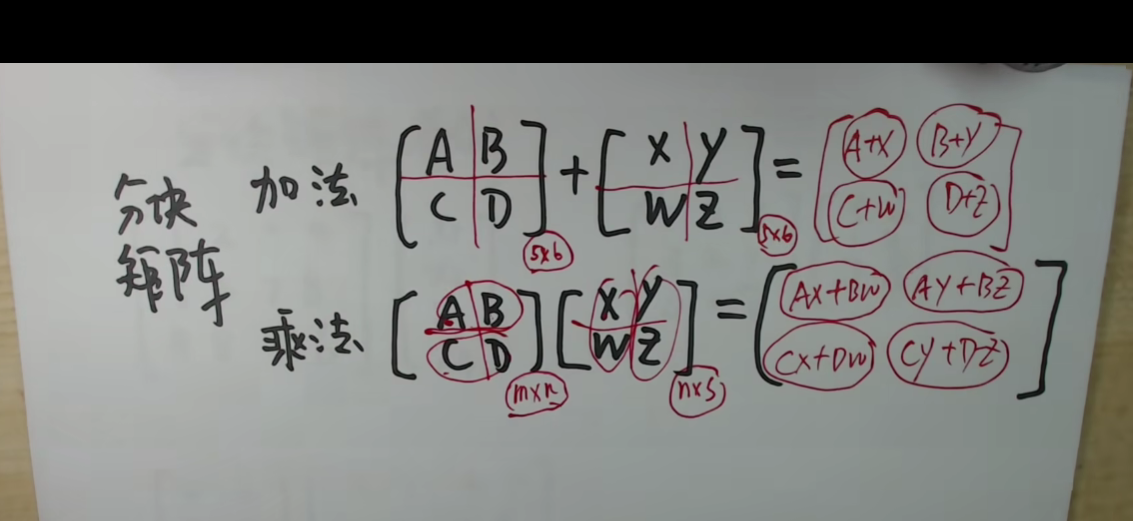 分块
矩阵
加法 [A B C D]5×6 + [X Y W Z]5×6 = [A+X B+Y C+W D+Z]
乘法 [A B C D]m×n [X Y W Z]n×s = [AX+BW AY+BZ CX+DW CY+DZ]